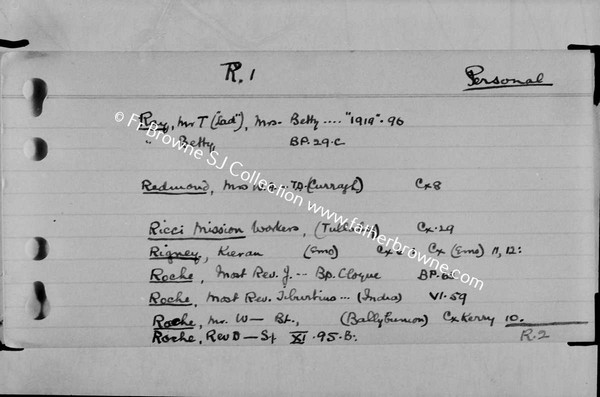 R.1
Personal
Ray, Mr T ("Tad"), Mrs. Betty .... "1919". 96
" Betty BP. 29. C
Redmond, Mrs (Curragh) Cx 8
Ricci Mission Workers, Cx. 29
Rigney, Kieran (Emo) Cx (Emo) 11, 12:
Roche, Most Rev. J. -- Bp. Cloyne BP.
Roche, Most Rev. Tiburtius ... (India) VI. 59
Roche, Mr. W — Bt., (Ballybunion) Cx Kerry 10.
Roche, Rev D — SJ XI. 95. B.
R.2
© Fr Browne SJ Collection www.fatherbrowne.com